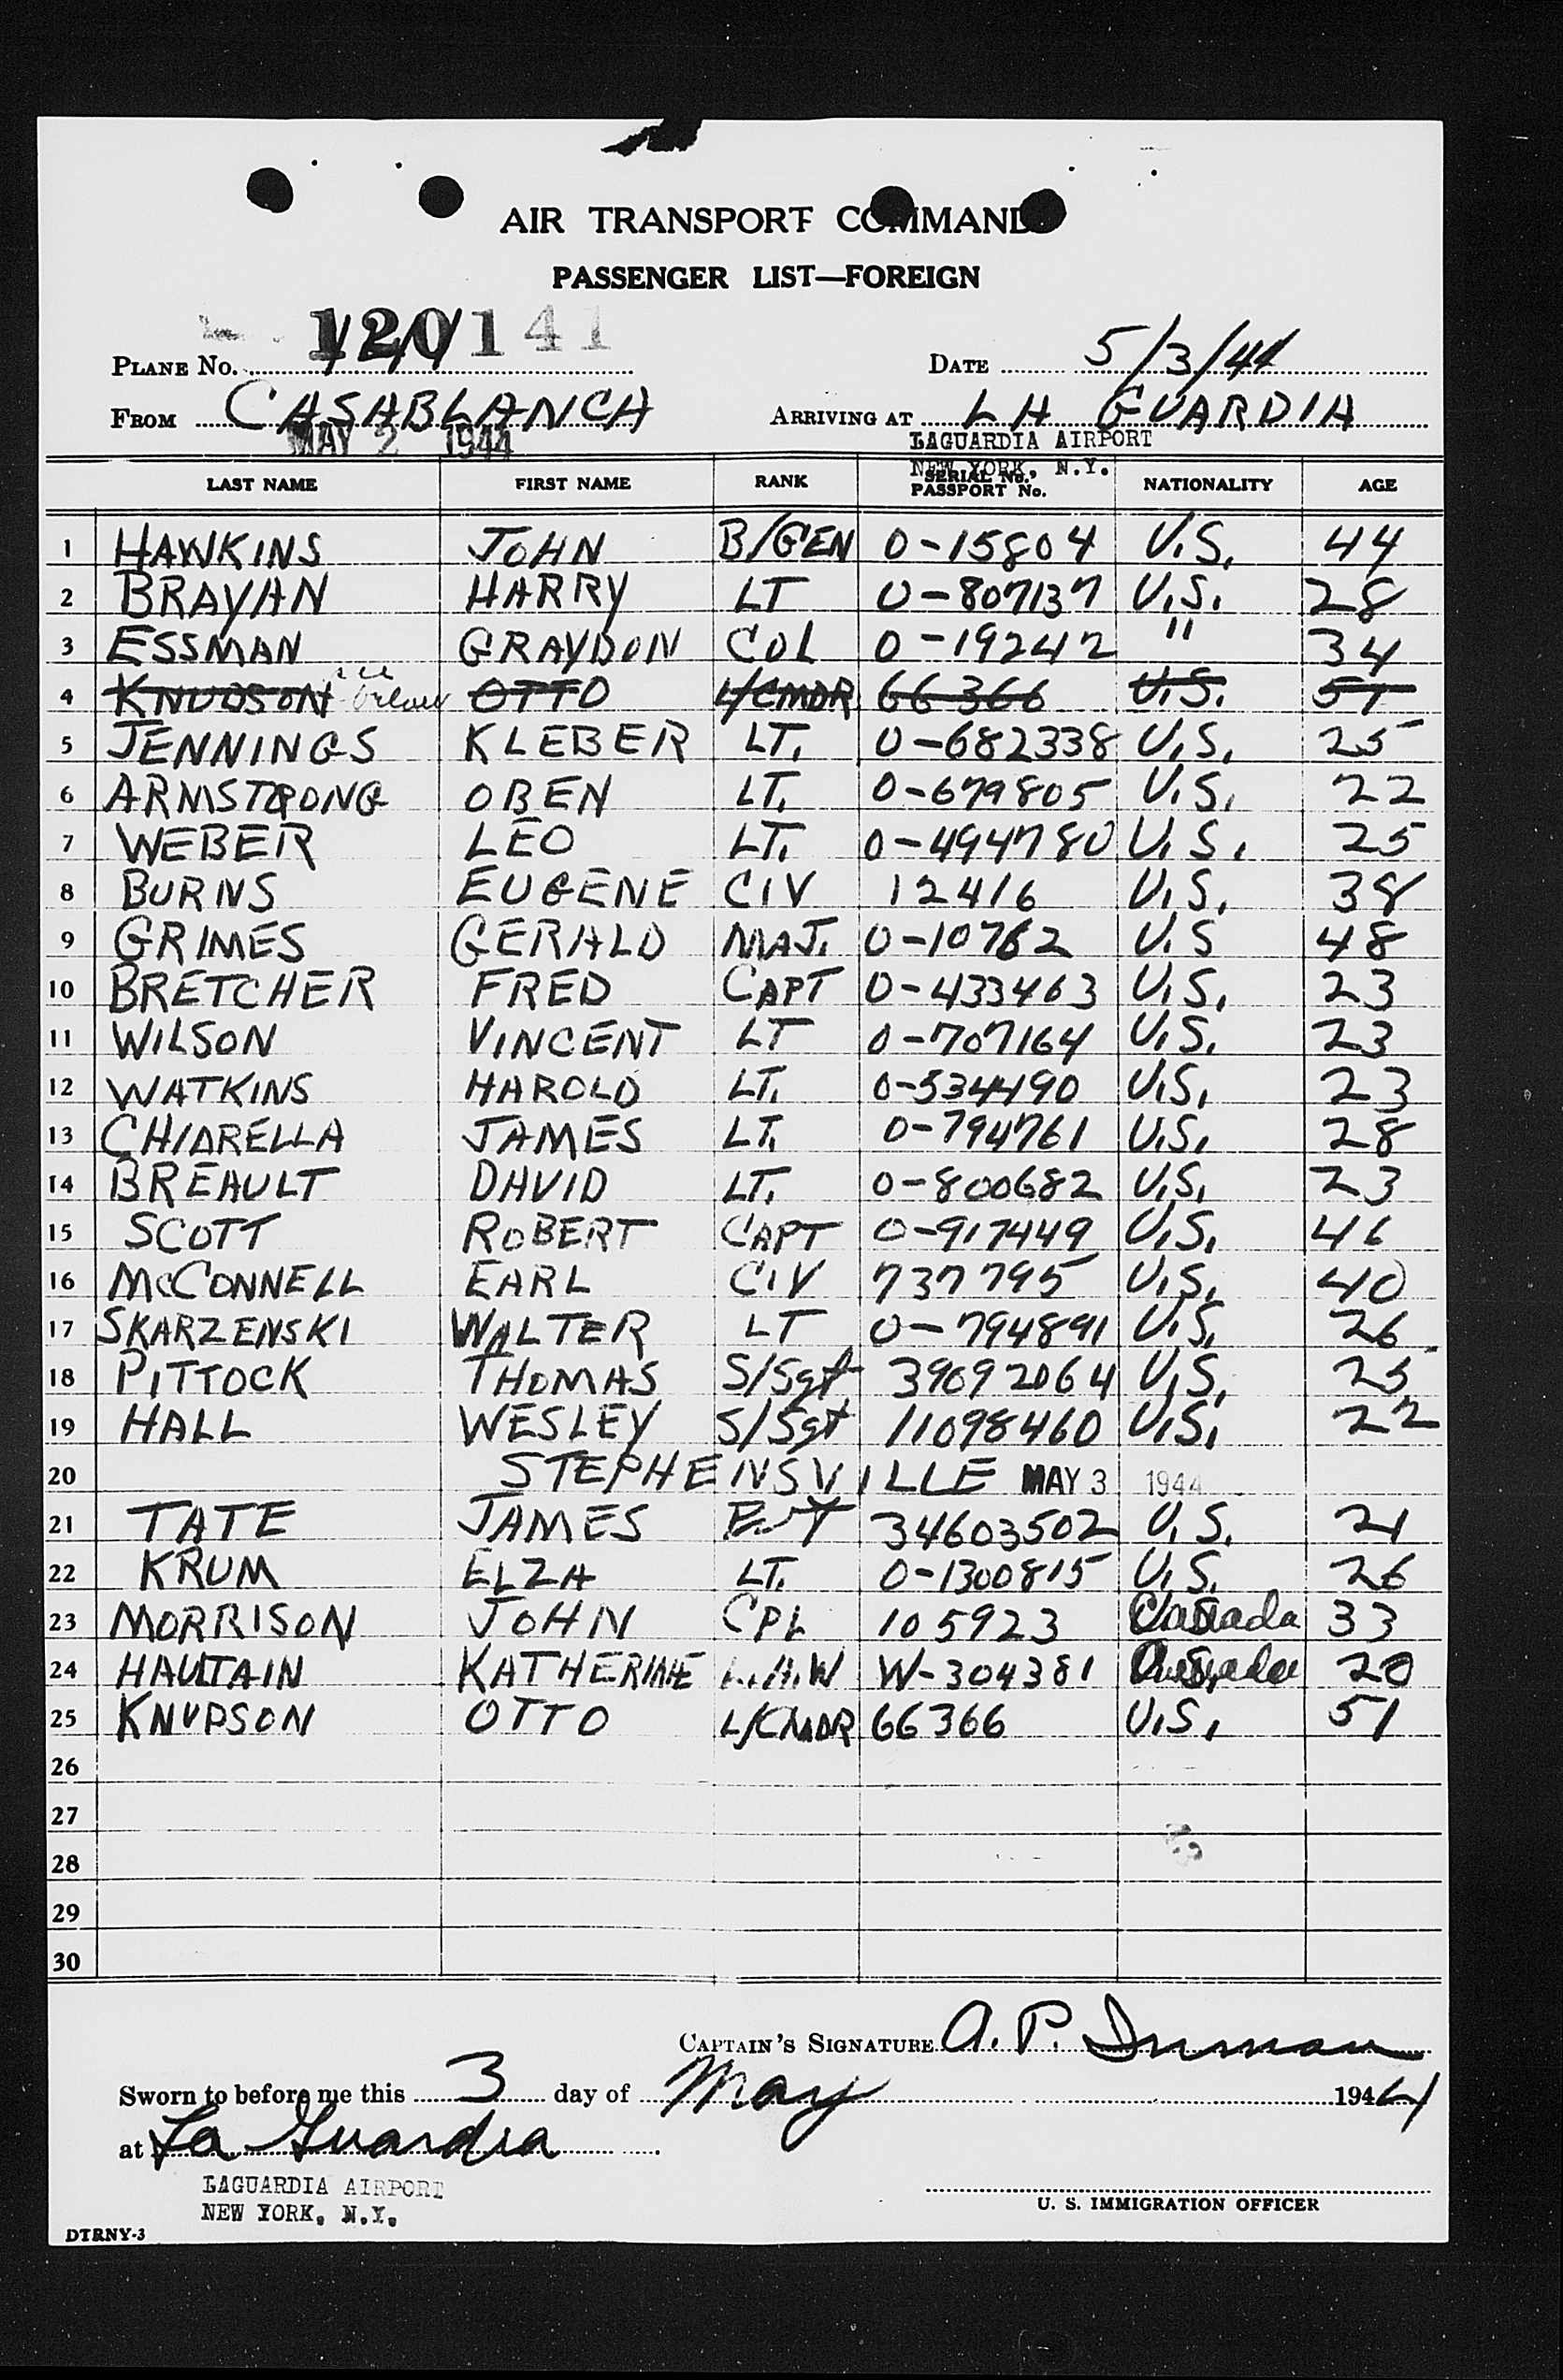 AIR TRANSPORT COMMAND
PASSENGER LIST—FOREIGN
PLANE No. 120141
DATE 5/3/44
FROM CASABLANCA
ARRIVING AT LA GUARDIA
MAY 2 1944
LAGUARDIA AIRPORT
NEW YORK, N.Y.
LAST NAME FIRST NAME RANK SERIAL No. PASSPORT No. NATIONALITY AGE
1 HAWKINS JOHN B/GEN 0-15804 U.S. 44
2 BRAYAN HARRY LT 0-807137 U.S. 28
3 ESSMAN GRAYDON COL 0-19242 " 34
4 KNUDSON OTTO L/CMDR 66366 U.S. 51
5 JENNINGS KLEBER LT. 0-682338 U.S. 25
6 ARMSTRONG OBEN LT. 0-679805 U.S. 22
7 WEBER LEO LT. 0-494780 U.S. 25
8 BURNS EUGENE CIV 12416 U.S. 38
9 GRIMES GERALD MAJ. 0-10762 U.S 48
10 BRETCHER FRED CAPT 0-433463 U.S. 23
11 WILSON VINCENT LT 0-707164 U.S. 23
12 WATKINS HAROLD LT. 0-534490 U.S. 23
13 CHIARELLA JAMES LT. 0-794761 U.S. 28
14 BREAULT DAVID LT. 0-800682 U.S. 23
15 SCOTT ROBERT CAPT 0-917449 U.S. 46
16 McCONNELL EARL CIV 737795 U.S. 40
17 SKARZENSKI WALTER LT 0-794891 U.S. 26
18 PITTOCK THOMAS S/Sgt 39092064 U.S. 25
19 HALL WESLEY S/Sgt 11098460 U.S. 22
20 STEPHENSVILLE MAY 3 1944
21 TATE JAMES 34603502 U.S. 21
22 KRUM ELZA LT. 0-1300815 U.S. 26
23 MORRISON JOHN CPL 105923 Canada 33
24 HAULTAIN KATHERINE W-304381 Canada 20
25 KNUDSON OTTO L/CMDR 66366 U.S. 51
26
27
28
29
30
CAPTAIN'S SIGNATURE A. P. Inman
Sworn to before me this 3 day of May 1944
at La Guardia
LAGUARDIA AIRPORT
NEW YORK, N.Y.
U. S. IMMIGRATION OFFICER
DTRNY-3